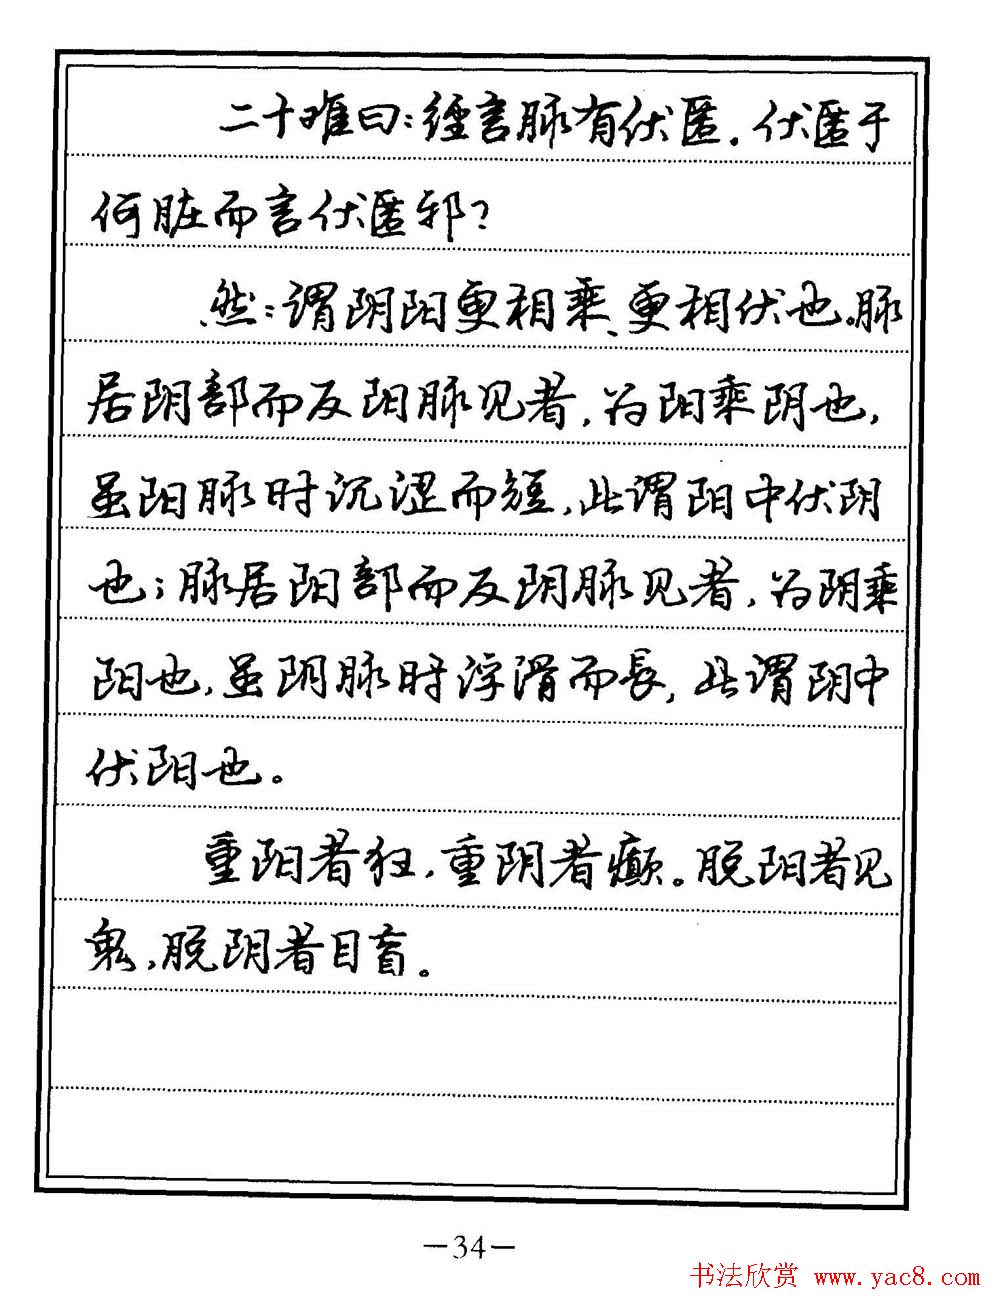 二十难曰：經言脉有伏匿。伏匿于
何脏而言伏匿邪？
然：谓阴阳更相乘、更相伏也。脉
居阴部而反阳脉见者，为阳乘阴也，
虽阳脉时沉涩而短，此谓阳中伏阴
也；脉居阳部而反阴脉见者，为阴乘
阳也，虽阴脉时浮滑而長，此谓阴中
伏阳也。
重阳者狂，重阴者癫。脱阳者见
鬼，脱阴者目盲。
—34—
书法欣赏 www.yac8.com